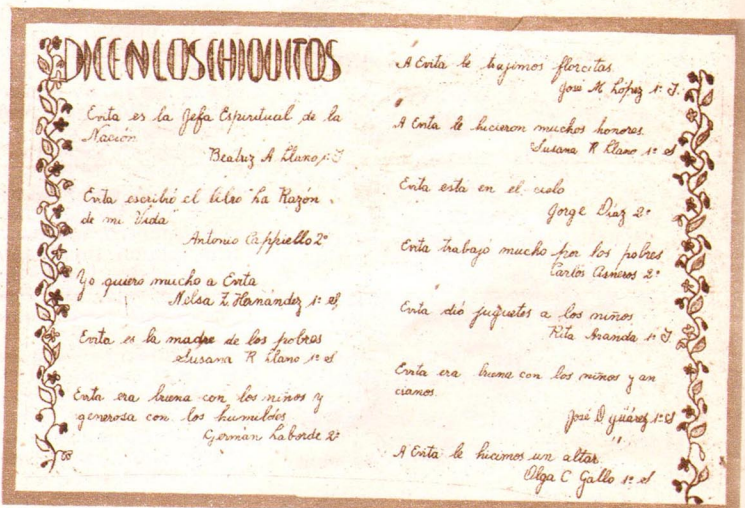 DICEN LOS CHIQUITOS
Evita es la Jefa Espiritual de la
Nación
Beatriz A Llano 1º I
Evita escribió el libro "La Razón
de mi Vida"
Antonio Cappiello 2º
Yo quiero mucho a Evita
Nelsa Z Hernández 1º S
Evita es la madre de los pobres
Susana R Llano 1º S
Evita era buena con los niños y
generosa con los humildes
Germán Laborde 2º
A Evita le trajimos florcitas.
José M López 1º I.
A Evita le hicieron muchos honores.
Susana R Llano 1º S
Evita está en el cielo
Jorge Díaz 2º
Evita trabajó mucho por los pobres
Carlos Cisneros 2º
Evita dió juguetes a los niños
Rita Aranda 1º I.
Evita era buena con los niños y an
cianos.
José O 1º S
A Evita le hicimos un altar.
Olga C Gallo 1º S